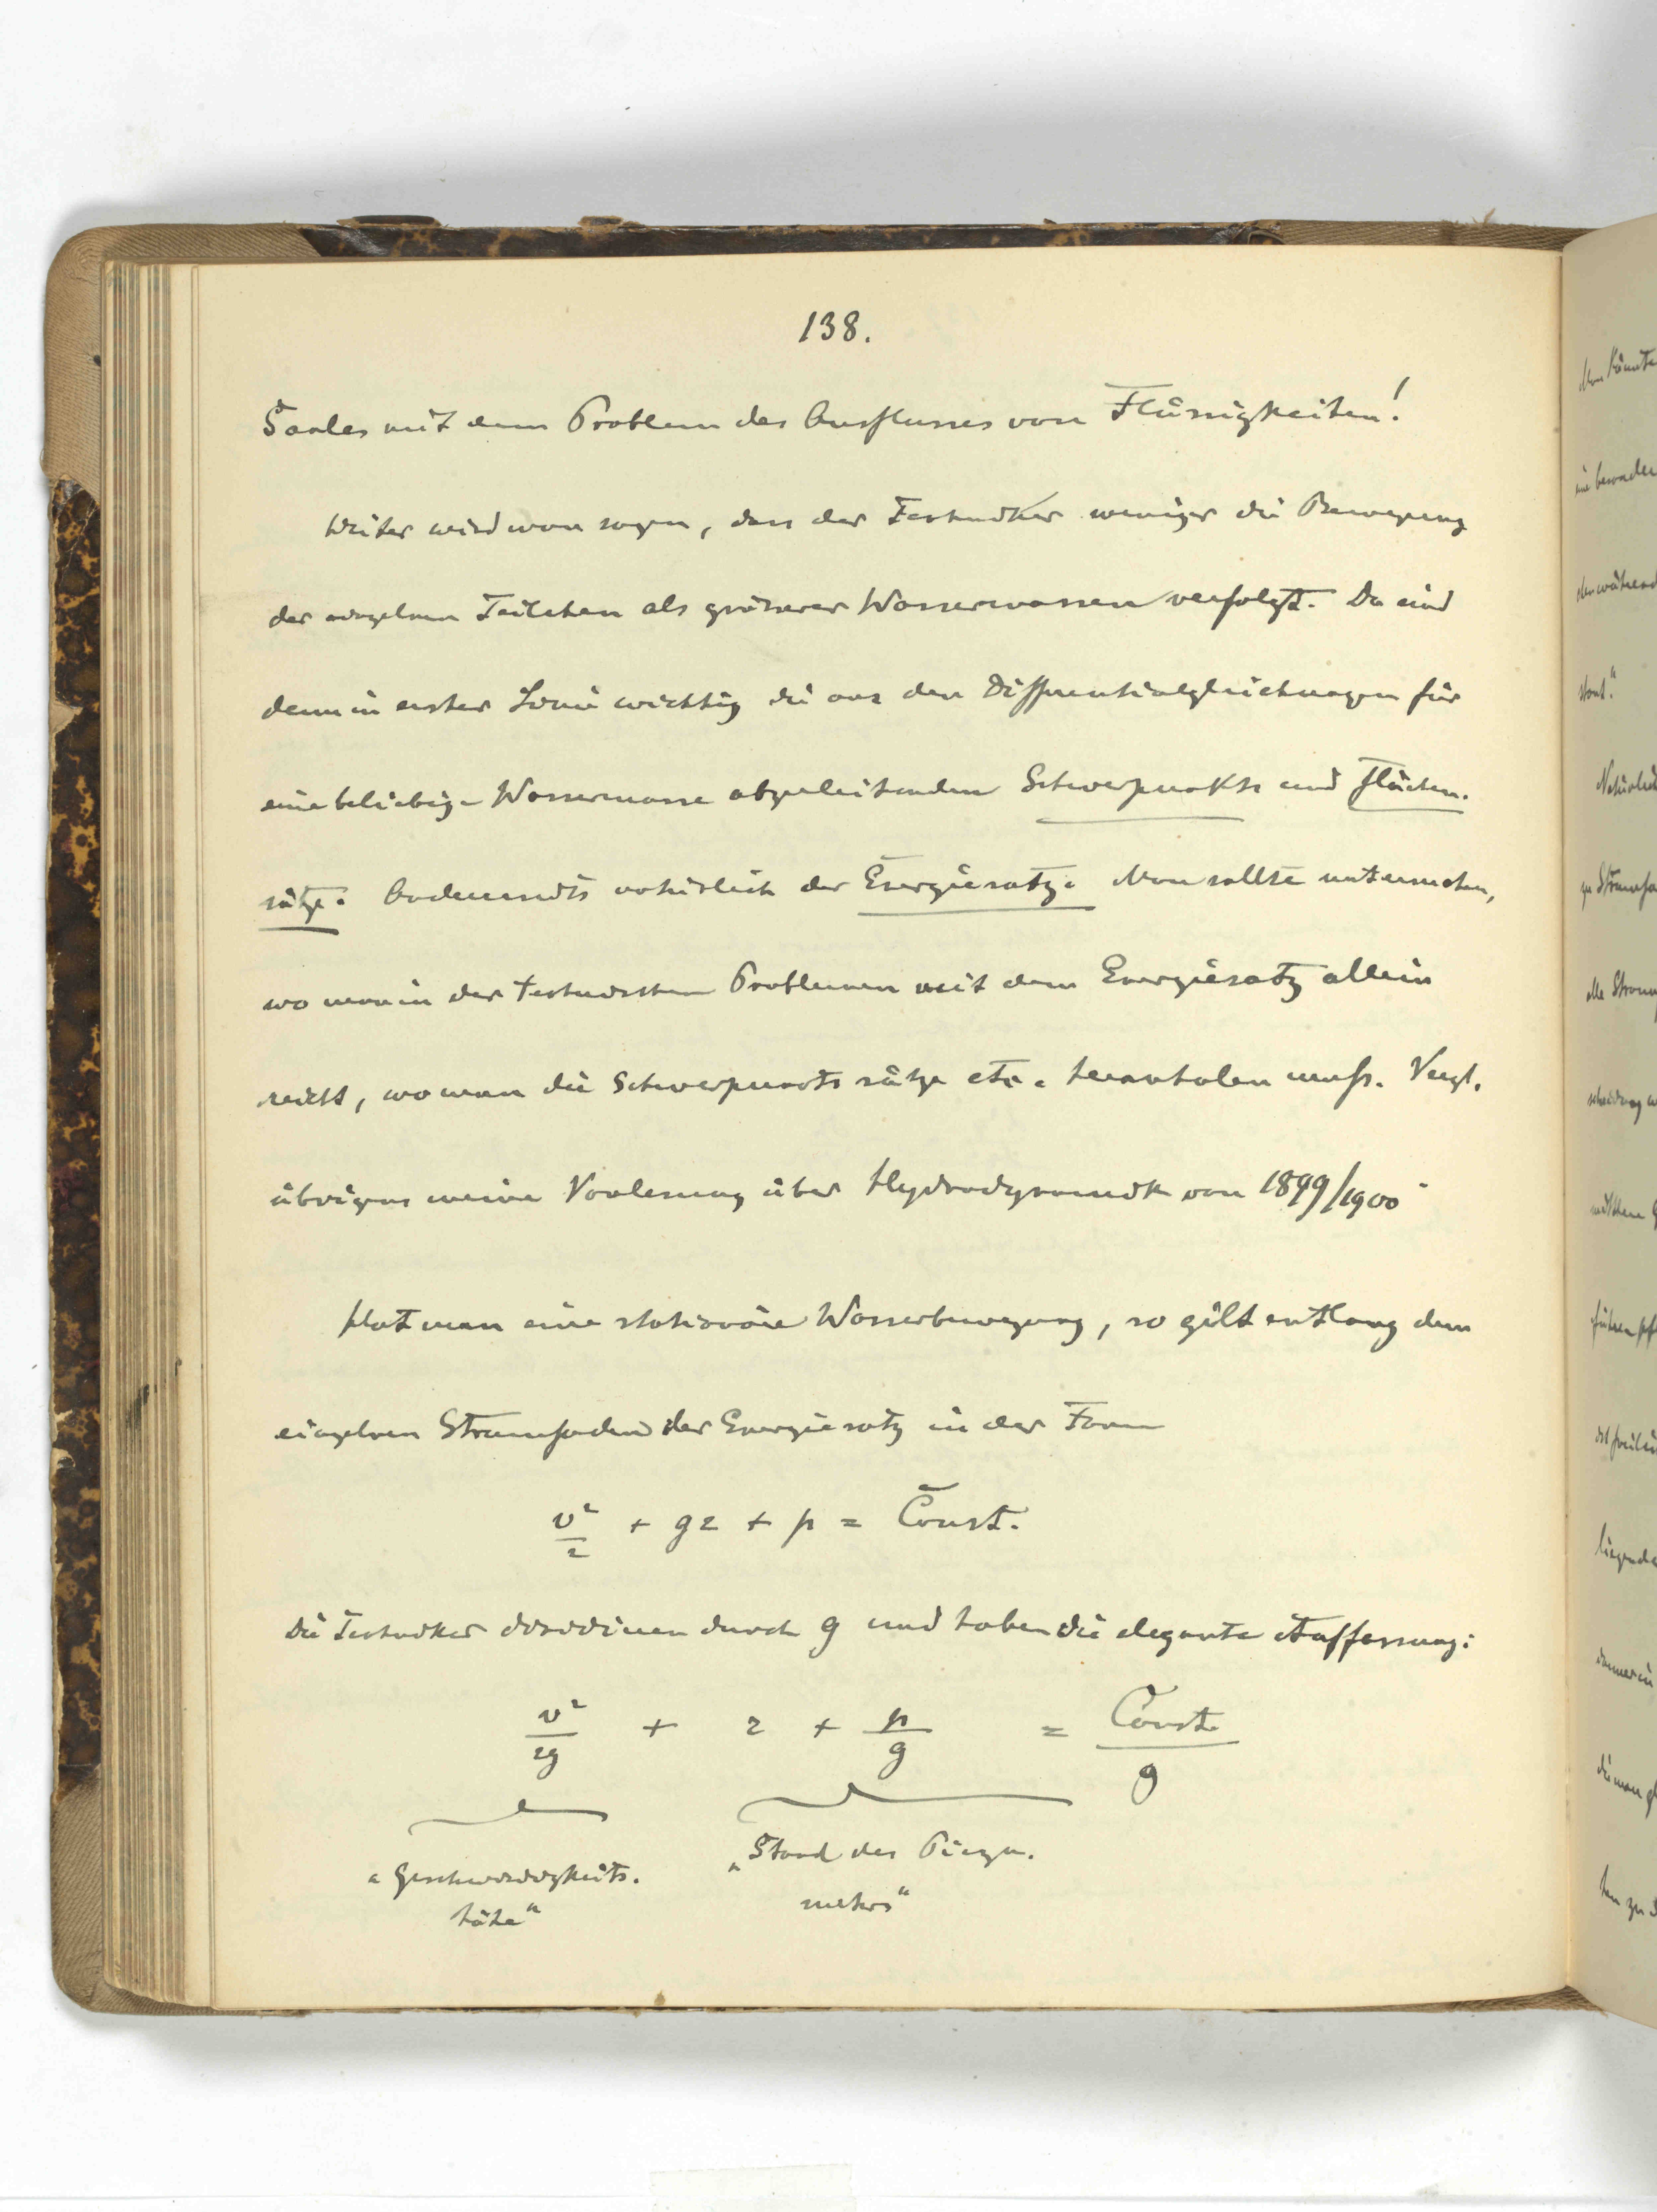 138.
Saales mit dem Problem des Ausflusses von Flüssigkeiten!
Weiter wird man sagen, dass der Techniker weniger die Bewegung
der einzelnen Teilchen als grösserer Wassermassen verfolgt. Da sind
denn in erster Linie wichtig die aus den Differentialgleichungen für
eine beliebige Wassermasse abzuleitenden Schwerpunkts und Flächen-
sätze. Andererseits natürlich der Energiesatz. Man sollte untersuchen,
wo man in den technischen Problemen mit dem Energiesatz allein
reicht, wo man die Schwerpunktssätze etc. heranholen muss. Vergl.
übrigens meine Vorlesung über Hydrodynamik von 1899/1900.
Hat man eine stationäre Wasserbewegung, so gilt entlang dem
einzelnen Stromfaden der Energiesatz in der Form
v²/2 + gz + p = Const.
Die Techniker dividieren durch g und haben die elegante Auffassung:
v²/2g + z + p/g = Const./g
„Geschwindigkeits- „Stand des Piezo-
höhe“ meters“
Man könnte